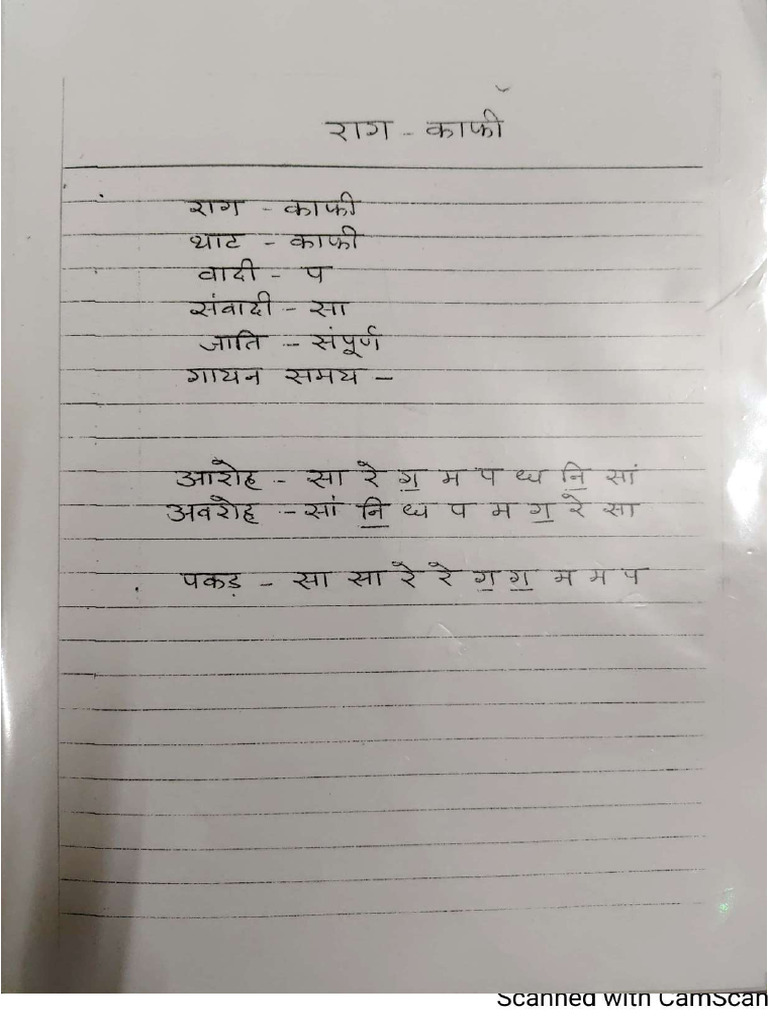 राग - काफी
राग - काफी
थाट - काफी
वादी - प
संवादी - सा
जाति - संपूर्ण
गायन समय -
आरोह - सा रे ग॒ म प ध नि॒ सां
अवरोह - सां नि॒ ध प म ग॒ रे सा
पकड़ - सा सा रे रे ग॒ ग॒ म म प
Scanned with CamScan